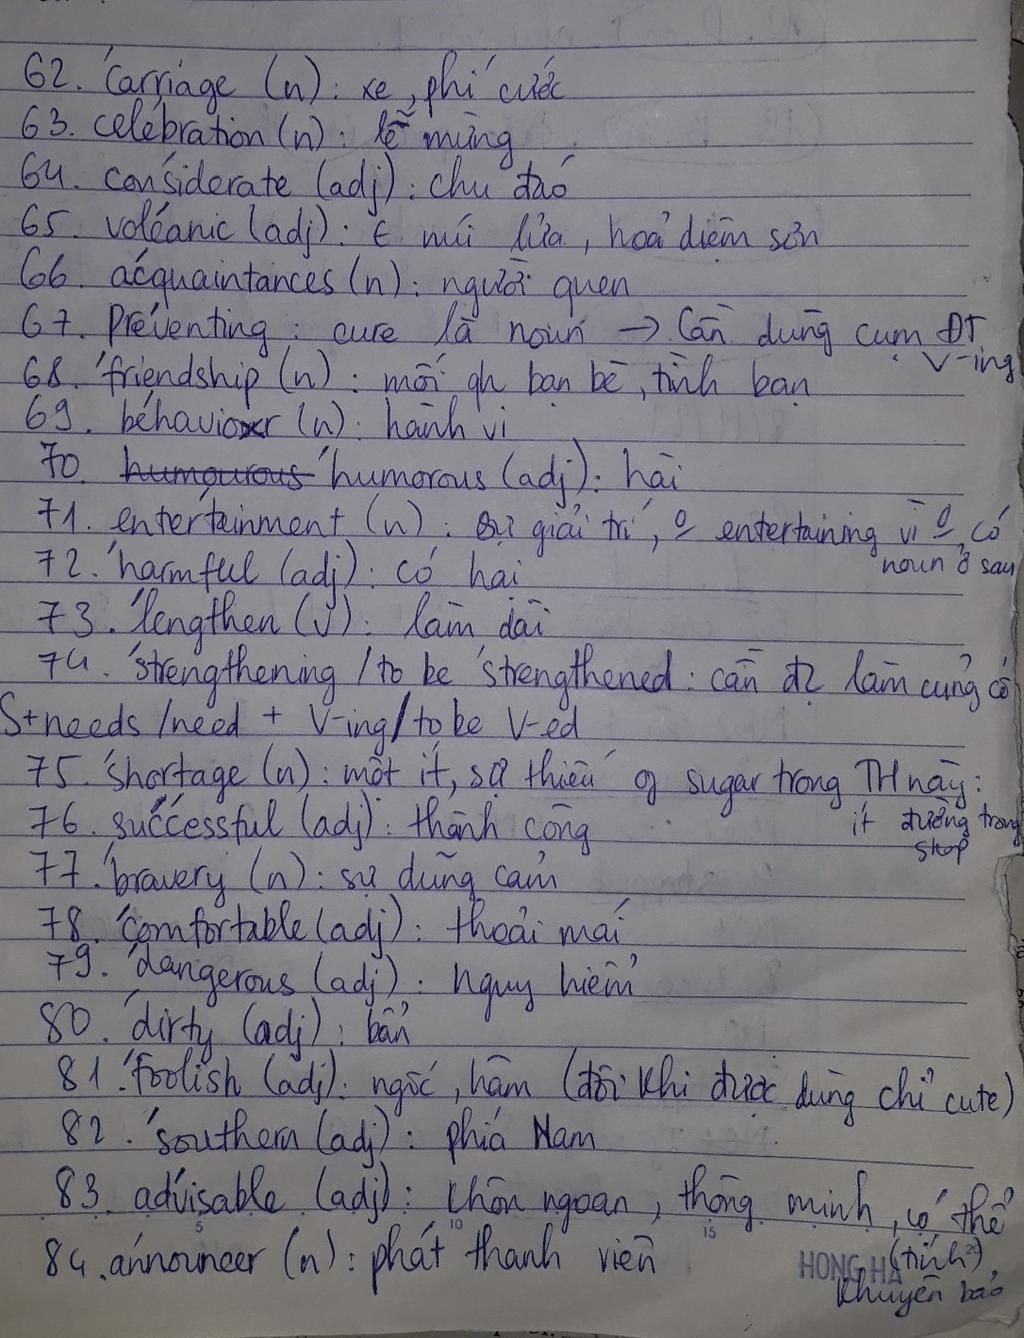 62. 'carriage (n): xe, phí cước
63. cele'bration (n): lễ mừng
64. con'siderate (adj): chu đáo
65. vol'canic (adj): núi lửa, hoả diệm sơn
66. a'cquaintances (n): người quen
67. Pre'venting: cure là noun → Cần dùng cụm ĐT V-ing
68. 'friendship (n): mối qh bạn bè, tình bạn
69. be'haviour (n): hành vi
70. humourous 'humorous (adj): hài
71. enter'tainment (n): sự giải trí, o entertaining vì o có
noun ở sau
72. 'harmful (adj): có hại
73. 'lengthen (v): làm dài
74. 'strengthening / to be 'strengthened: cần đc làm củng cố
S+needs /need + V-ing/to be V-ed
75. 'shortage (n): một ít, sự thiếu of sugar trong TH này:
ít đường trong
shop
76. suc'cessful (adj): thành công
77. 'bravery (n): sự dũng cảm
78. 'comfortable (adj): thoải mái
79. 'dangerous (adj): nguy hiểm
80. 'dirty (adj): bẩn
81. 'foolish (adj): ngốc, hâm (đôi khi được dùng chỉ cute)
82. 'southern (adj): phía Nam
83. ad'visable (adj): khôn ngoan, thông minh, có thể
(tính)
khuyên bảo
84. a'nnouncer (n): phát thanh viên
5 10 15 20
HONG HA